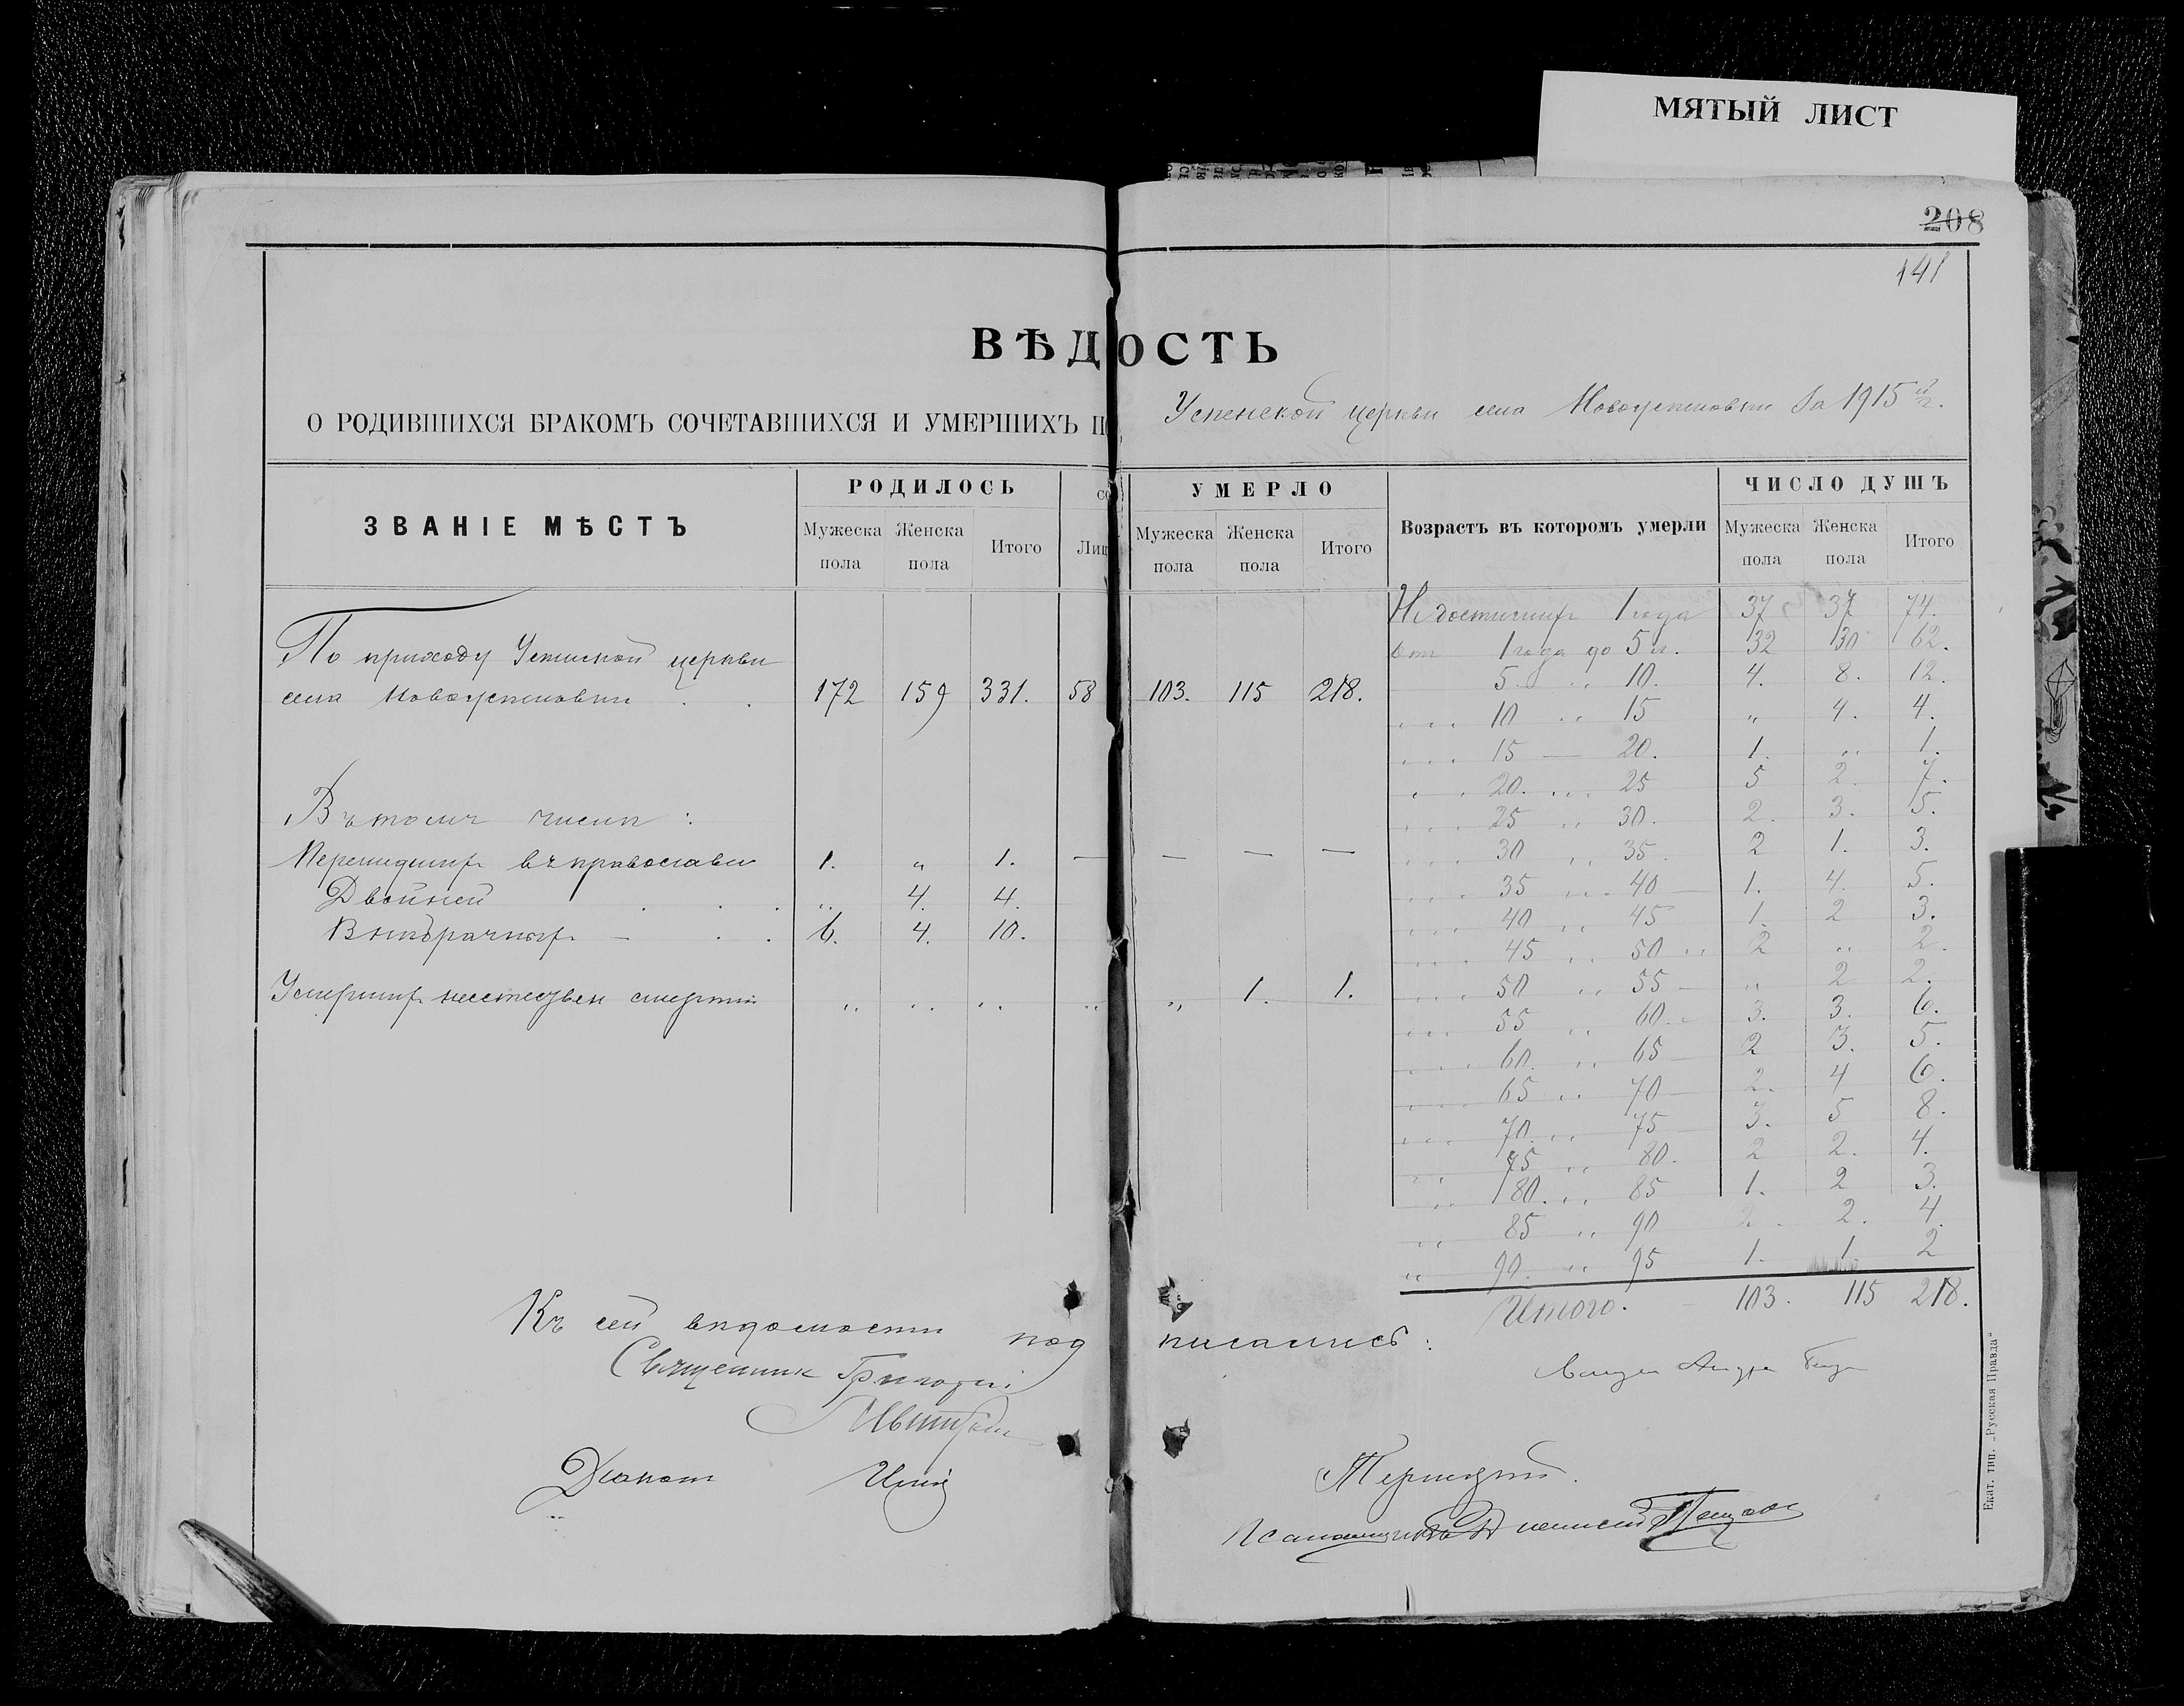 МЯТЫЙ ЛИСТ
208
141
ВѢДОСТЬ
О РОДИВШИХСЯ БРАКОМЪ СОЧЕТАВШИХСЯ И УМЕРШИХЪ ПО Успенской церкви села Новоуспеновки за 1915 г.
ЗВАНІЕ МѢСТЪ
РОДИЛОСЬ
Мужеска пола
Женска пола
Итого
СО
Лиц
УМЕРЛО
Мужеска пола
Женска пола
Итого
Возрастъ въ которомъ умерли
ЧИСЛО ДУШЪ
Мужеска пола
Женска пола
Итого
По приходу Успенской церкви
села Новоуспеновки . . 172 159 331. 58 103. 115 218.
Въ томъ числѣ:
Перешедших въ православи 1. „ 1. — — — —
Двойней . . . „ 4. 4.
Внѣбрачных — . . 6. 4. 10.
Умерших неестествен смертію „ „ „ „ „ 1. 1.
Не достигших 1 года 37 37 74.
от 1 года до 5 л. 32 30 62.
5. „ 10. 4. 8. 12.
„ „ 10 „ 15 „ 4. 4.
„ „ 15 — 20. 1. „ 1.
„ „ 20. „ 25 5 2. 7.
„ „ 25 „ 30. 2. 3. 5.
„ „ 30 „ 35. 2 1. 3.
„ „ 35 „ 40 1. 4. 5.
„ „ 40 „ 45 1. 2 3.
„ „ 45 „ 50 „ 2 „ 2.
„ „ 50 „ 55 „ 2 2.
„ „ 55 „ 60. 3. 3. 6.
„ „ 60. „ 65 2 3. 5.
„ „ 65 „ 70 2. 4 6.
„ „ 70. „ 75 3. 5 8.
„ 75 „ 80. 2 2. 4.
„ 80. „ 85 1. 2 3.
„ 85 „ 90 2. 2. 4.
„ 90. „ 95 1. 1. 2
Итого. 103. 115 218.
Къ сей вѣдомости подписались:
Священник Григорій
Діакон
Псаломщикъ
Екат. тип. „Русская Правда“